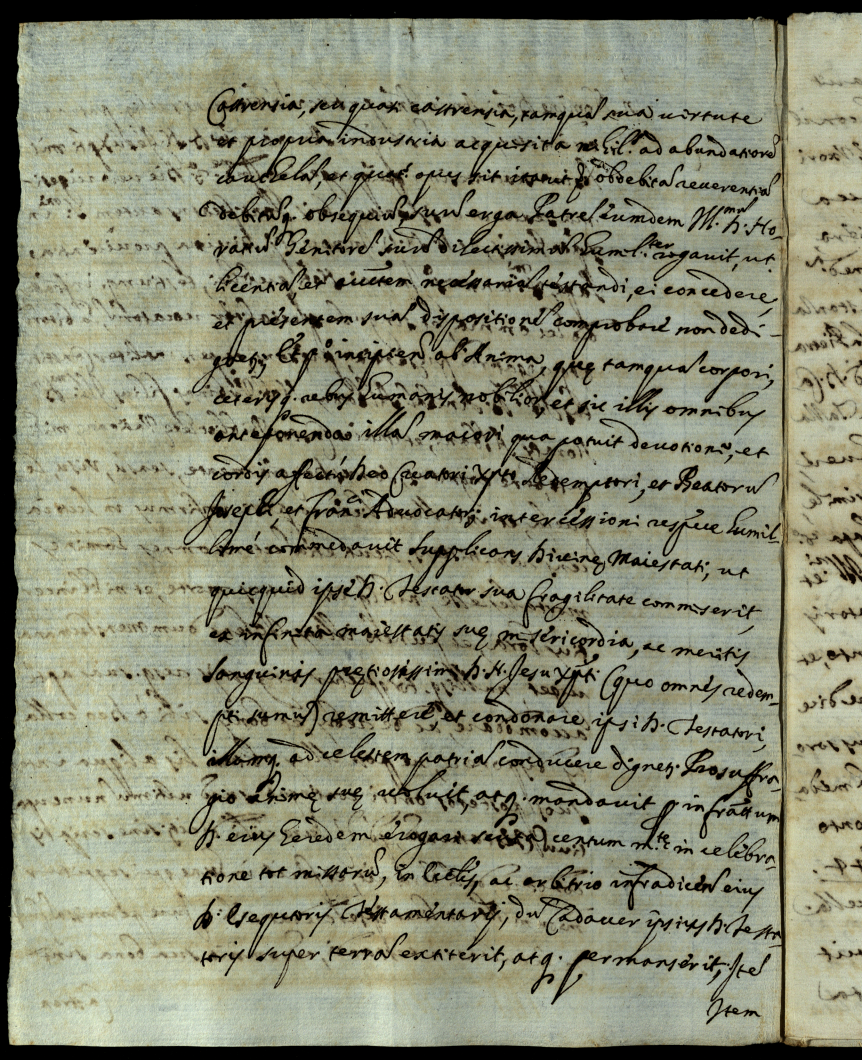 Castrensia, seu quasi castrensia, tamquã sua uirtute
et propria industria acquisita nihil.s ad abundatiorẽ
cautelã, et quat.s opus sit ob debitã reuerentiã
debitũq. obsequiũ suũ erga Patrẽ eumdem M.m D. Ho-
ratiũ Genitorẽ suũ dilectissimũ humil.ter rogauit, ut
licentiã et necessariã testandi, ei concedere,
et presentem suã dispositionẽ comprobare non dedi-
gnet.r Et p.o incipiens ab Anima, quę tamquã corpori,
ceterisq. rebus humanis nobilior, et sic illis omnibus
anteponenda illã maiori qua potuit deuotione, et
cordis affectu Deo Creatori Xpto Redemptori, et Beatorũ
Joseph, et Fran.ci Aduocator. intercessioni humil-
limé comẽdauit supplicans Diuinę Maiestati, ut
quicquid ipse D. Testator sua fragilitate commiserit,
ex infinita maiestatis suę misericordia, ac meritis
sanguinis pretiosissimi D. N. Jesu Xpti (quo omnes redem-
pti sumus) remittere et condonare ipsi D. Testatori,
illamq. ad celestem patriã conducere dignet.r Pro suffra-
gio Animę suę uoluit, atq. mandauit p infrãttum
D. eius heredem erogari scuta centum m.te in celebra-
tione tot missarũ, in Eccliis, ac arbitrio infradicẽd eius
D. Exequutoris Testamentarij, dũ Cadauer ipsius D. Testa-
toris super terrã extiterit, atq. permanserit, Itẽ
Item